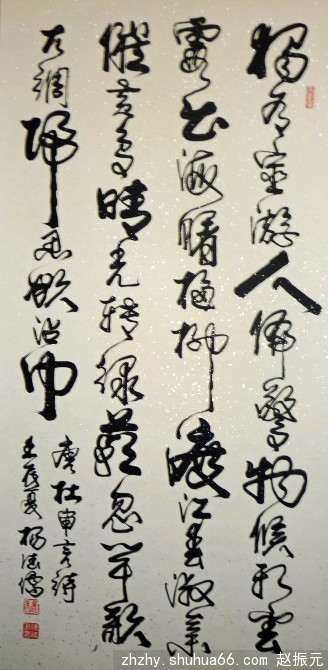 獨有宦遊人偏驚物候新雲
霞出海曙梅柳渡江春淑氣
催黃鳥晴光轉綠蘋忽聞歌
古調歸思欲沾巾
唐杜審言詩
壬辰夏楊
zhzhy.shuhua66.com 赵振元